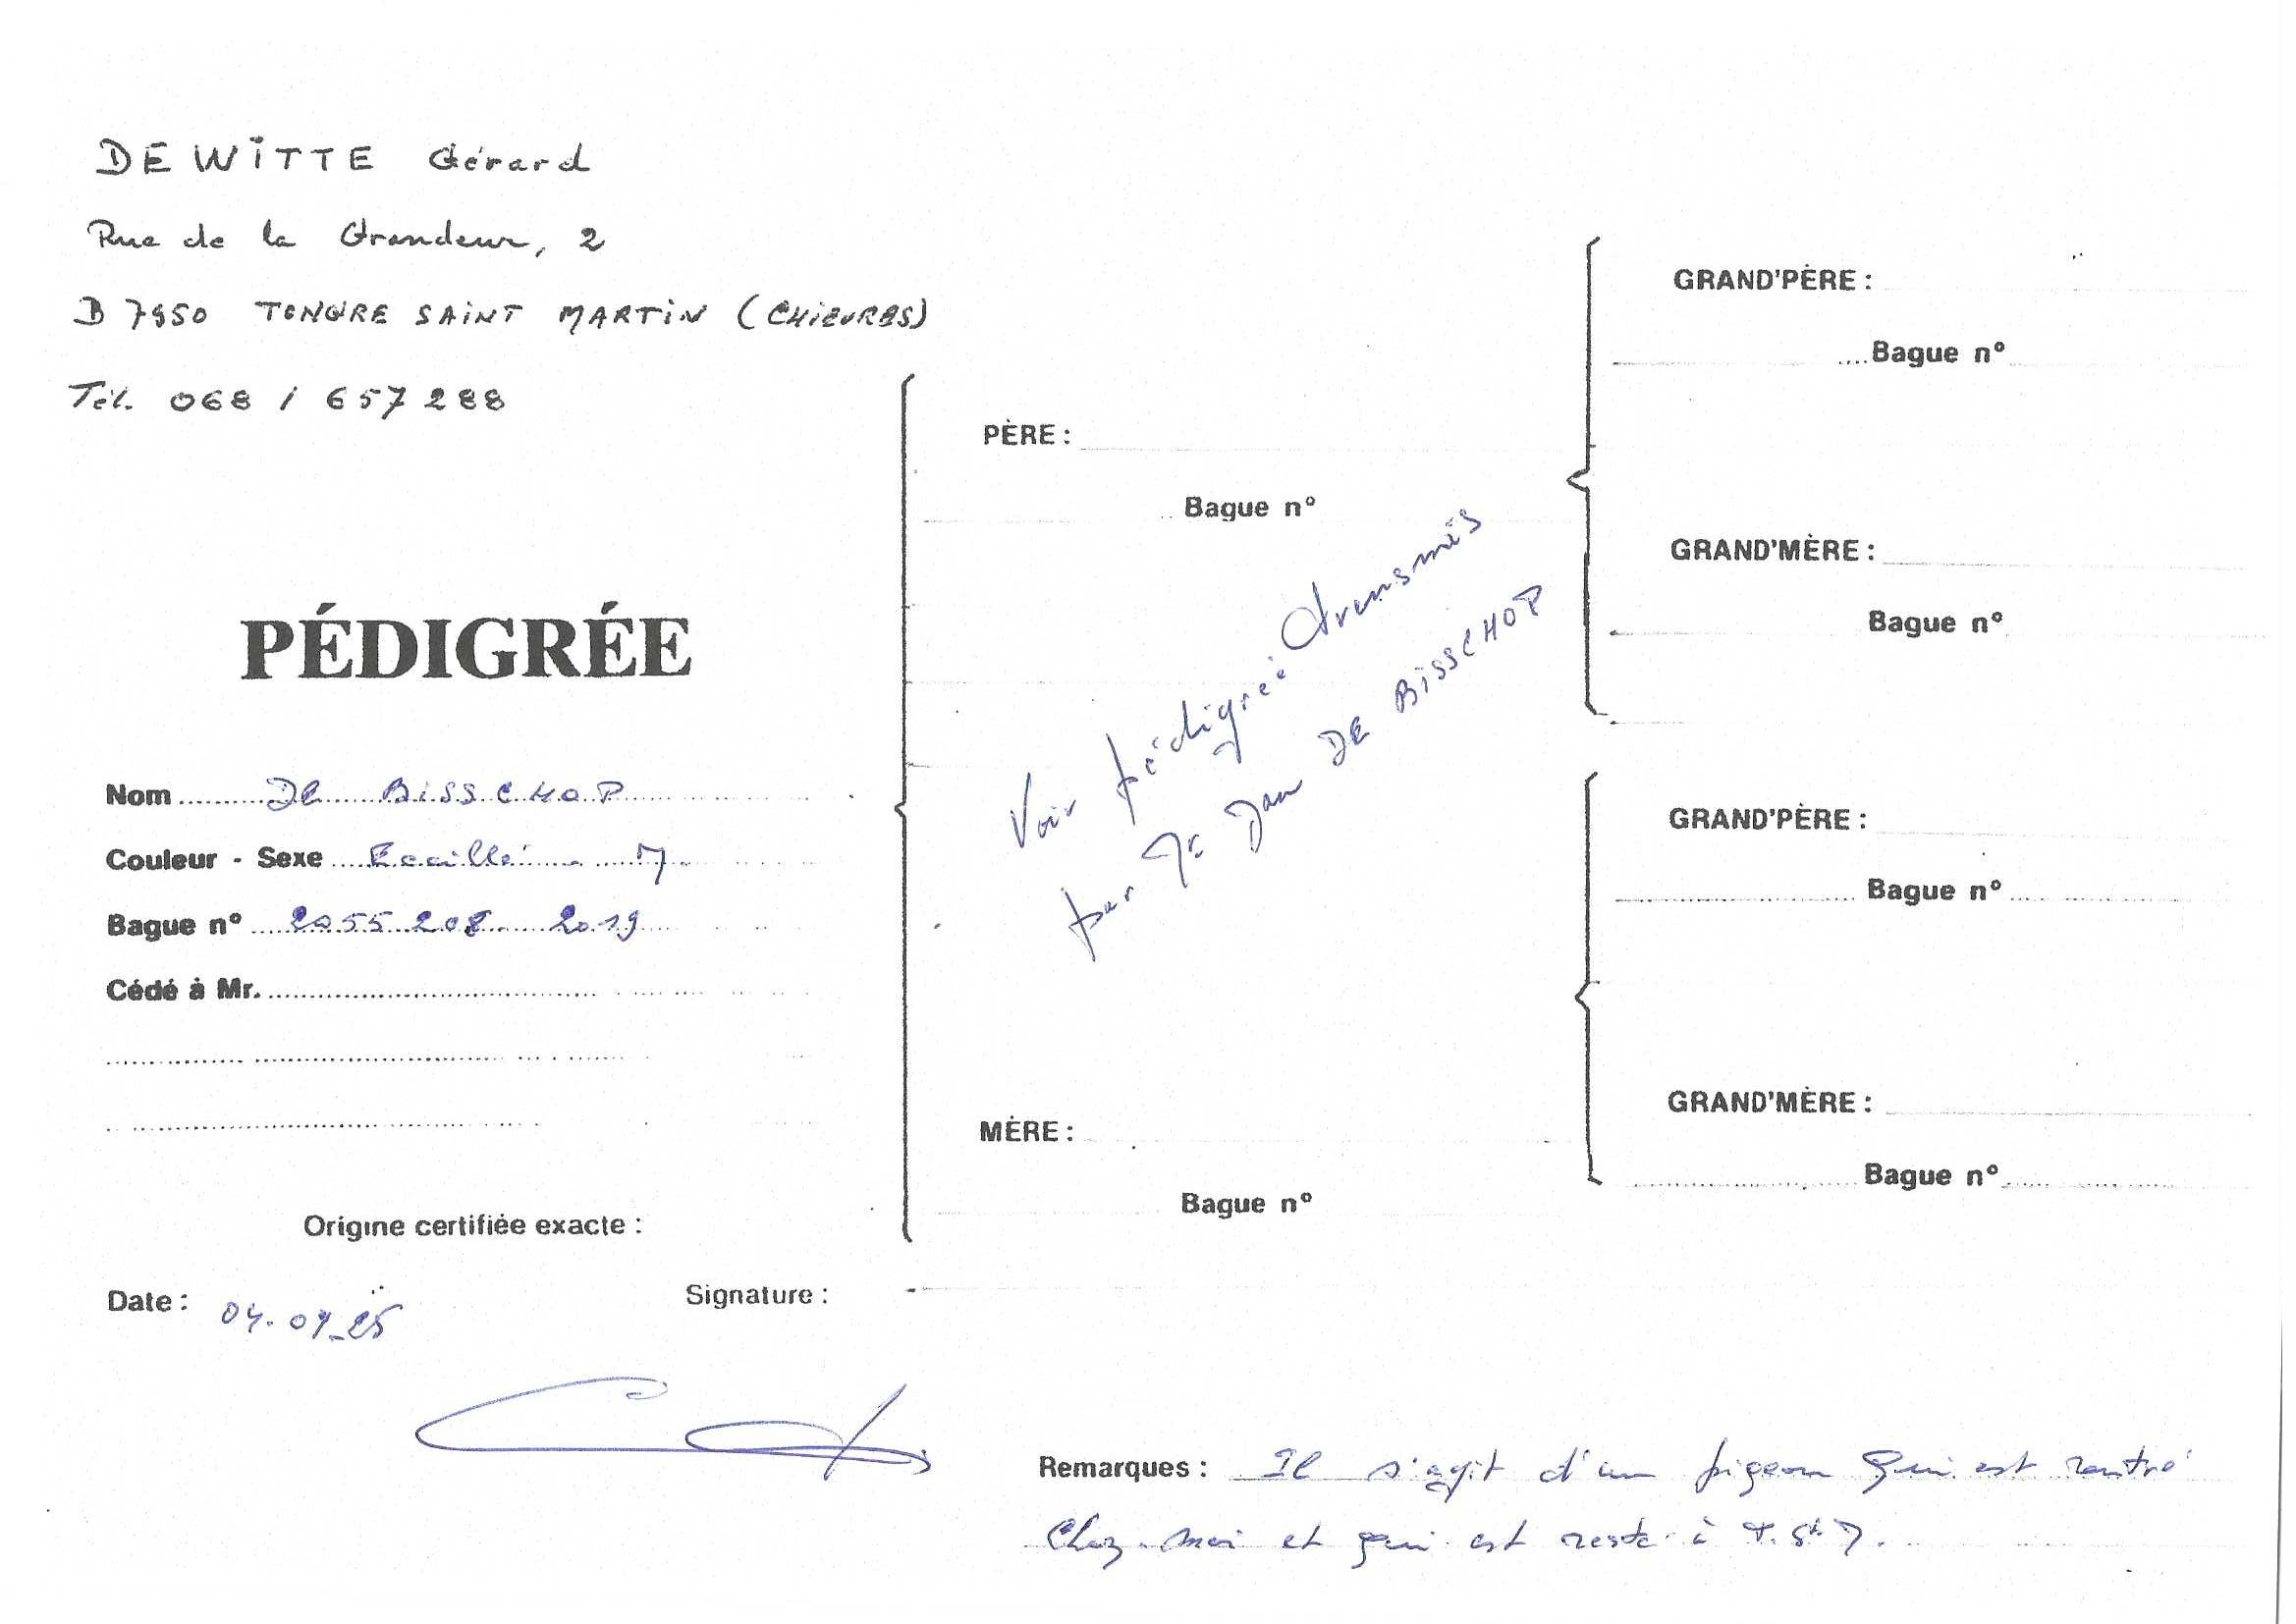 DEWITTE Gérard
Rue de la Grandeur, 2
B 7950 TONGRE SAINT MARTIN (CHIEVRES)
Tél. 068 / 657 288
PÉDIGRÉE
Nom DE BISSCHOP
Couleur - Sexe Ecaillé M.
Bague n° 2055208 - 2019
Cédé à Mr.
Origine certifiée exacte :
Date : 04-07-25
Signature :
PÈRE :
Bague n°
Voir pédigrée transmis
par Mr Jean DE BISSCHOP
MÈRE :
Bague n°
GRAND'PÈRE :
Bague n°
GRAND'MÈRE :
Bague n°
GRAND'PÈRE :
Bague n°
GRAND'MÈRE :
Bague n°
Remarques : Il s'agit d'un pigeon qui est rentré
chez moi et qui est resté à T. St M.